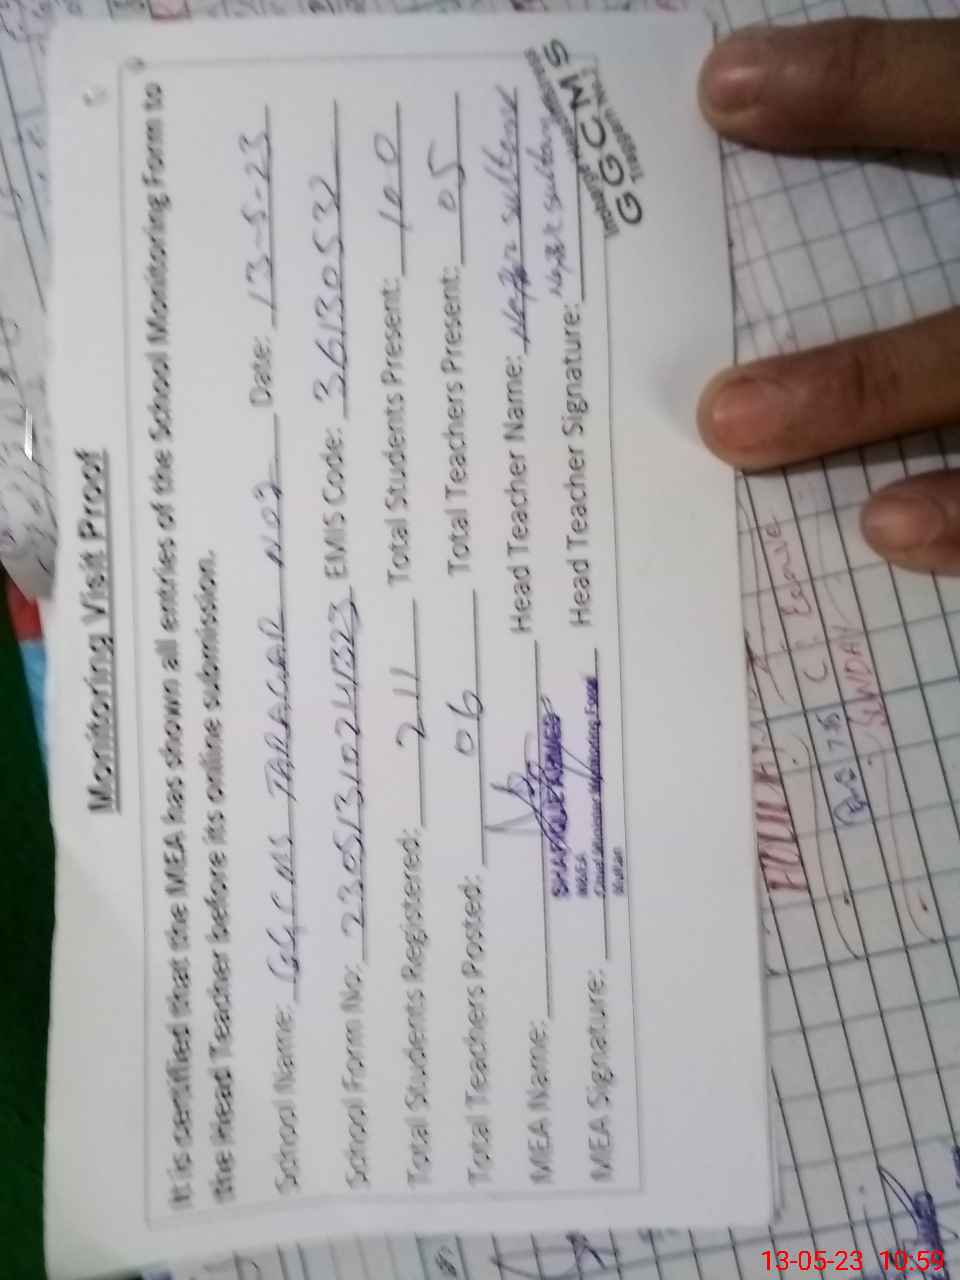 Monitoring Visit Proof
It is certified that the MEA has shown all entries of the School Monitoring Form to
the Head Teacher before its online submission.
School Name: GGCMS TARAGAR NO2 Date: 13-5-23
School Form No: 23051310241323 EMIS Code: 36130532
Total Students Registered: 211 Total Students Present: 100
Total Teachers Posted: 06 Total Teachers Present: 05
MEA Name: Head Teacher Name: Sultana
SHAFIQUE AHMED
M&EA
Chief Minister Monitoring Force
Multan
MEA Signature: Head Teacher Signature: Sultana
GGCMS
SUNDAY
13-05-23 10:59